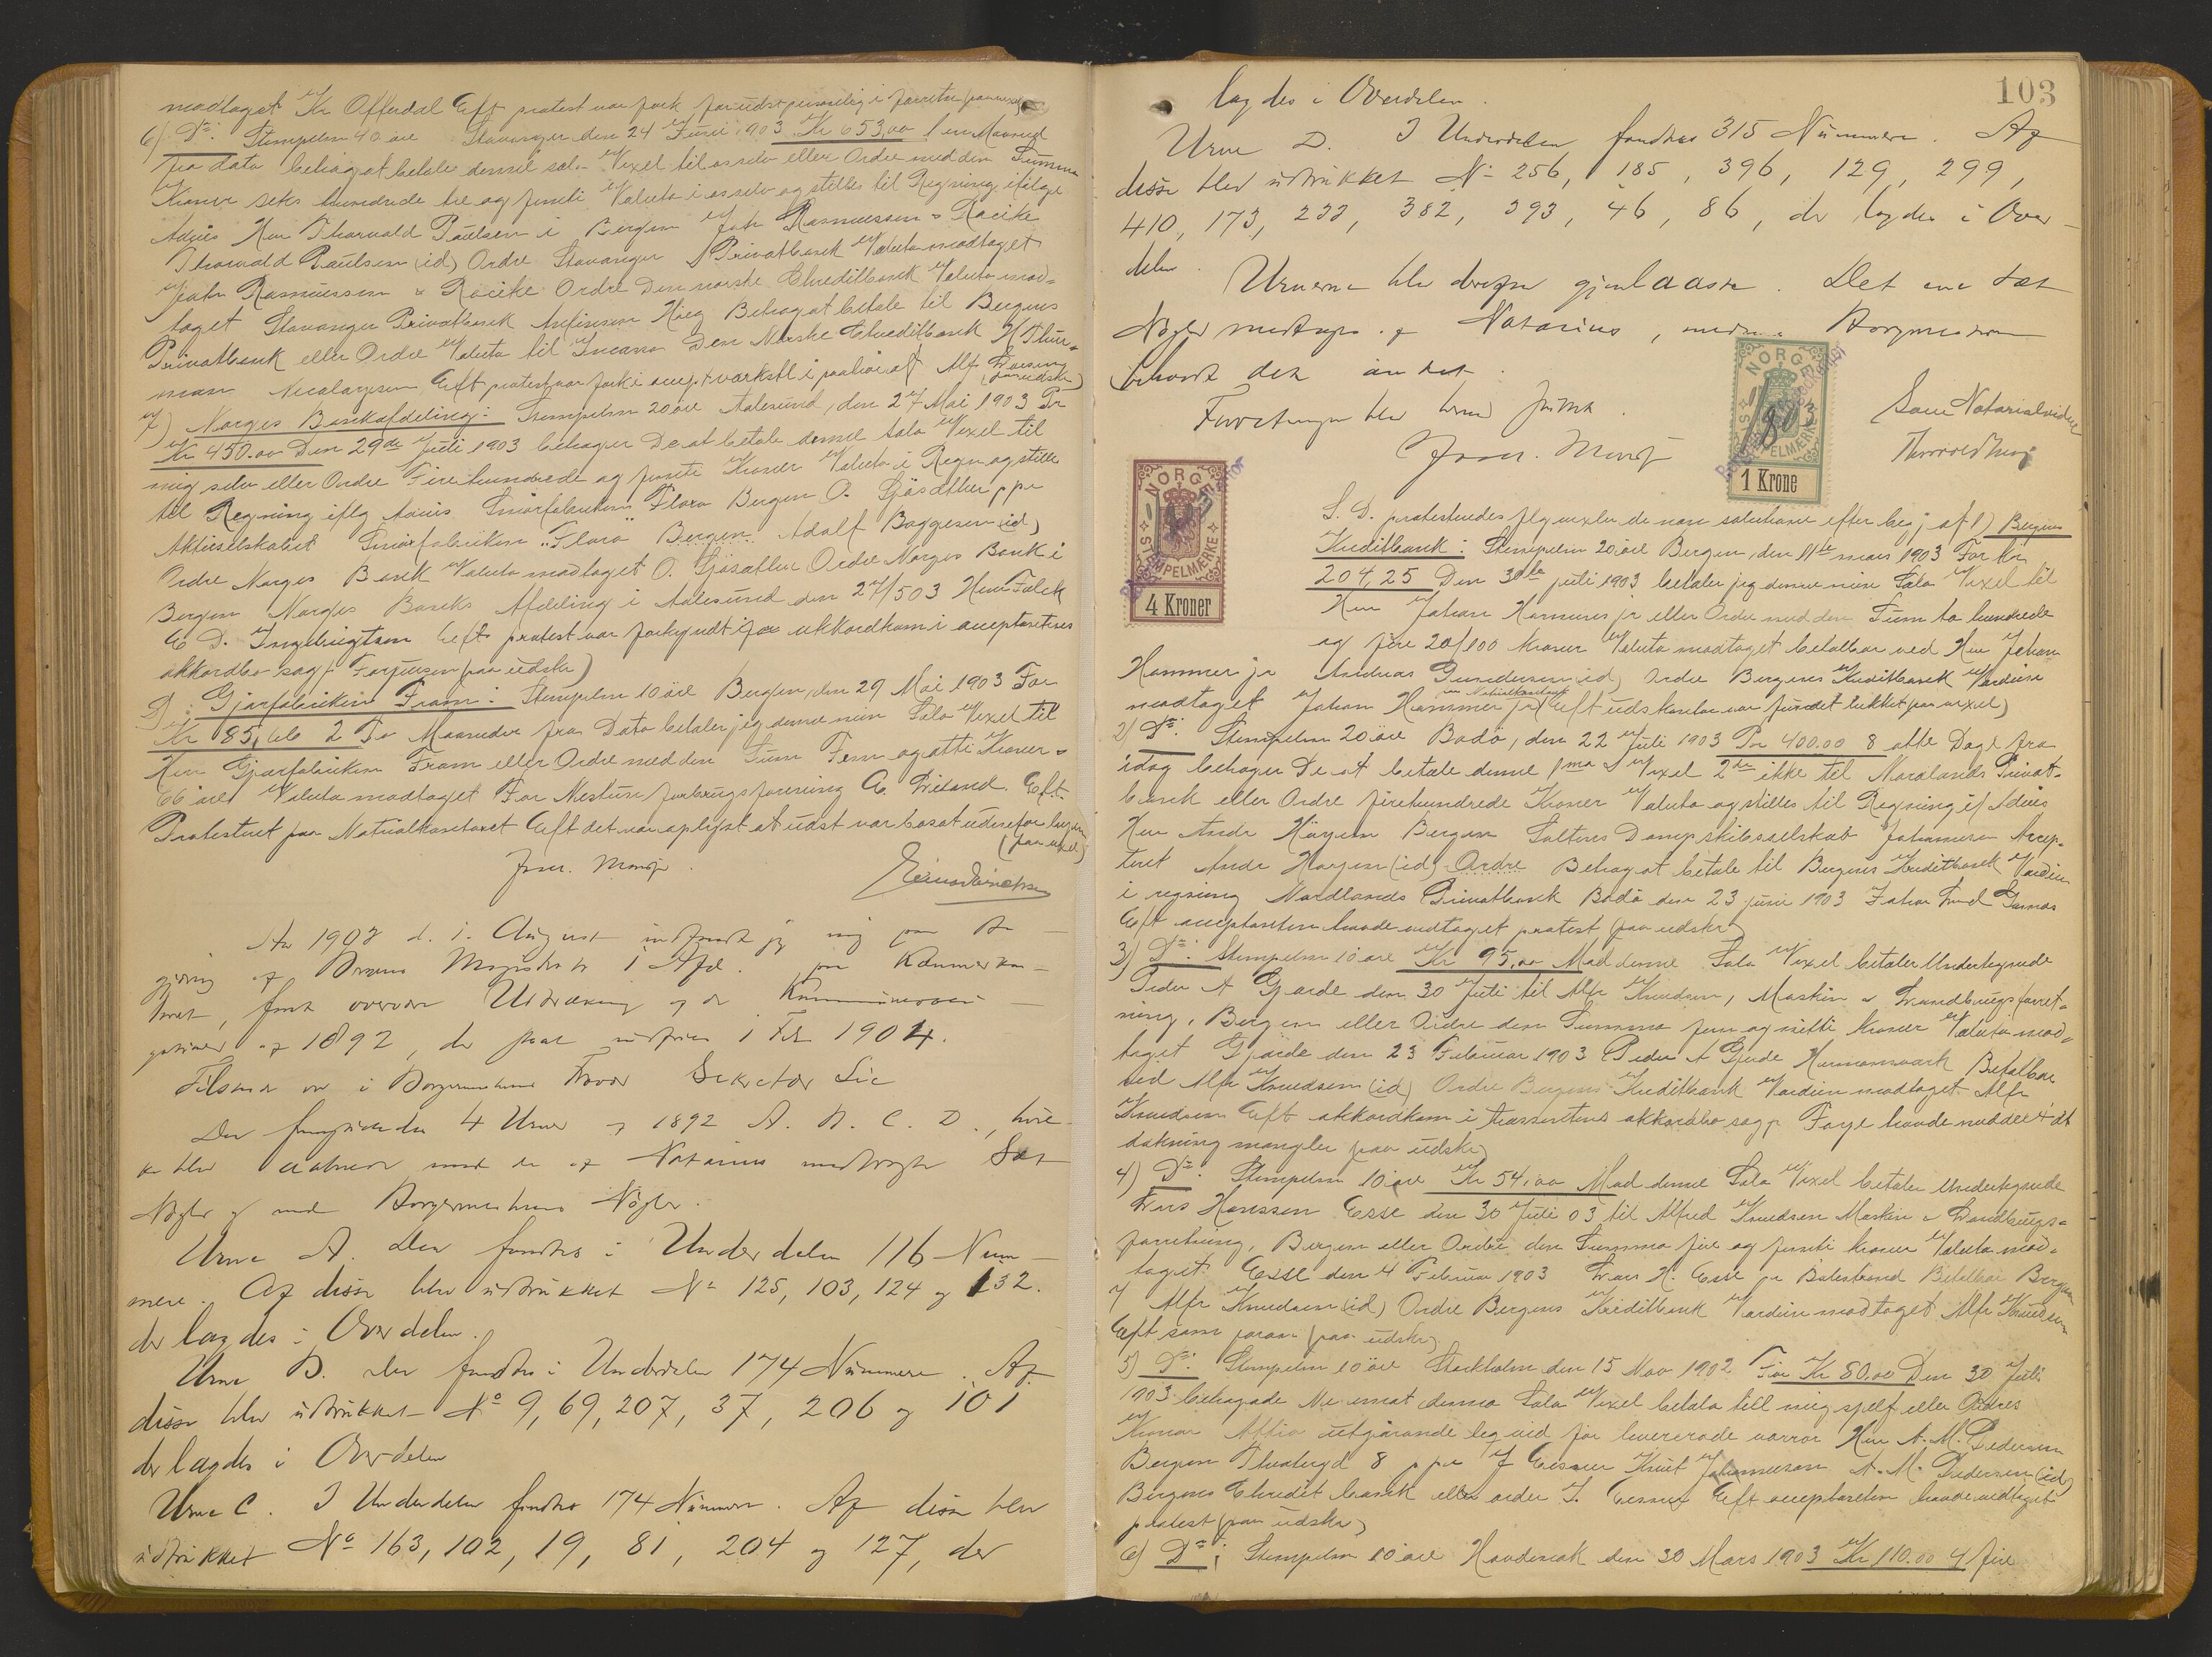 modtaget Kr Offerdal Eft protest var fork
6) Do: Stempelm 40 öre Stavanger den 24 Juni 1903 Kr 653,00 1 en Maaned
fra dato behag at betale denne sola Vexel til os selv eller Ordre med den Summa
Kroner seks hundrede tre og femti Valuta i os selv og stilles til Regning ifölge
Advis Herr Thorvald Paulsen i Bergen Rasmussen & Racike
Thorvald Paulsen (id) Ordre Stavanger Privatbank Valuta modtaget
Rasmussen & Racike Ordre Den norske Creditbank Valuta mod=
taget Stavanger Privatbank Behag at betale til Bergens
Privatbank eller Ordre Valuta til Incasso Den Norske Creditbank
Nicolaysen Eft protest var
7) Norges Bankafdeling: Stempelm 20 öre Aalesund, den 27 Mai 1903 Pr
Kr 450.00 Den 29de Juli 1903 behager De at betale denne sola Vexel til
mig selv eller Ordre Firehundrede og femti Kroner Valuta i Regn og stilles
til Regning iflg Advis Smörfabriken Flora Bergen O. ppr
Aktieselskabet Smörfabriken "Flora" Bergen Adolf Baggesen (id)
Ordre Norges Bank Valuta modtaget O. Ordre Norges Bank i
Bergen Norges Banks Afdeling i Aalesund den 27/5 03
E D. Ingebrigtsen Eft protest var forkyndt for akkordkom i acceptantens
akkordbo sagf. (paa udskr)
8) Gjærfabriken Fram: Stempelm 10 öre Bergen, den 29 Mai 1903 For
Kr 85,66 2 To Maaneder fra Dato betaler jeg denne min Sola Vexel til
Herr Gjærfabriken Fram eller Ordre med den Sum Fem og otti Kroner &
66 öre Valuta modtaget For Nestun forbrugsforening Eft
Protesteret paa Notarialkontoret Eft det var oplyst at udst var bosat udenfor byen
(paa vexel)
Aar 1903 d. 1. August indfandt jeg mig paa
af Magistrats 1 Afd. paa Kæmnerkon-
toret, for at overvære Udtrækning af de Kommuneobli-
gationer af 1892, der skal indfries 1 Feb 1904.
Tilstede var i Borgermesterens Sekretær Lie
Der fremsattes 4 Urner af 1892 A. B. C. D., hvil-
ke blev aabnede med de af Notarius medbragte Sæt
Nögler og med Borgermesterens Nögler.
Urne A. Der fandtes i Underdelen 116 Num-
mere. Af disse blev udtrukket No 125, 103, 124 og 132.
der lagdes i Overdelen.
Urne B. der fandtes i Underdelen 174 Nummere. Af
disse blev udtrukket No 9, 69, 207, 37, 206 og 101
der lagdes i Overdelen
Urne C. I Underdelen fandtes 174 Nummere. Af disse blev
udtrukket No 163, 102, 19, 81, 204 og 127, der
103
lagdes i Overdelen.
Urne D. I Underdelen fandtes 315 Nummere. Af
disse blev udtrukket No 256, 185, 396, 129, 299,
410, 173, 233, 382, 393, 46, 86, der lagdes i Over-
delen.
Urnerne blev derefter gjenlaaste. Det ene Sæt
Nögler medtoges af Notarius, medens Borgermesteren
beholdt det andet.
Forretningen blev hermed sluttet.
Som Notarialvidne
NORGE
STEMPELMÆRKE
1 Krone
NORGE
STEMPELMÆRKE
4 Kroner
S. D. protesteredes flg vexler de non solutione efter beg. af 1) Bergens
Kreditbank: Stempelm 20 öre Bergen, den 11te mars 1903 For Kr
204,25 Den 30te juli 1903 betaler jeg denne min Sola Vexel til
Herr Johan Hammer jr eller Ordre med den Sum to hundrede
og fire 20/100 Kroner Valuta modtaget betalbar ved Herr Johan
Hammer jr Andreas Gundersen (id) Ordre Bergens Kreditbank Værdien
modtaget Johan Hammer jr (Eft udst kontor var fundet lukket paa vexel)
2) Do: Stempelm 20 öre Bodö, den 22 Juli 1903 Pr 400.00 8 otte Dage fra
idag behager De at betale denne Vexel 2den ikke til Nordlands Privat-
bank eller Ordre firehundrede Kroner Valuta og stilles til Regning if Advis
Herr Andr Hagen Bergen Saltens Dampskibsselskab Johannesen Accep-
teret Andr Hagen (id) Ordre Behag at betale til Bergens Kreditbank Værdien
i regning Nordlands Privatbank Bodö den 23 juni 1903
Eft acceptanten havde vedtaget protest (paa udskr)
3) Do: Stempelm 10 öre Kr 95,00 Mod denne Sola Vexel betaler Undertegnede
Peder A Gjerde den 30 Juli til Alfr Knudsen, Maskin & Landbrugsforret-
ning, Bergen eller Ordre den Summa fem og nitti Kroner Valuta mod-
taget Gjerde den 23 Februar 1903 Peder A Gjerde Hermansverk Betalbar
ved Alfr Knudsen (id) Ordre Bergens Kreditbank Værdien modtaget Alfr
Knudsen Eft akkordkom i trassentens akkordbo sagf. Faye havde meddelt at
dækning mangler (paa udskr)
4) Do: Stempelm 10 öre Kr 54,00 Mod denne Sola Vexel betaler Undertegnede
Hanssen Esse den 30 Juli 03 til Alfred Knudsen Maskin & Landbrugs=
forretning, Bergen eller Ordre den Summa fire og femti Kroner Valuta mod=
taget Esse den 4 Februar 1903 H. Esse pr Balestrand Betalbar Bergen
Alfr Knudsen (id) Ordre Bergens Kreditbank Værdien modtaget Alfr Knudsen
Eft som foran (paa udskr)
5) Do: Stempelm 10 öre Stockholm den 15 Nov 1902 För Kr 80,00 Den 30 Juli
1903 behagade Ni emot denna Sola Vexel betala till mig sjelf eller Ordres
Kronor Åttio utgjörande leqvid för levererade varror Herr A. M. Pedersen
Bergen Theatergd 8 ppr J Eisner Knut Johannesson A. M. Pedersen (id)
Bergens Kredit bank eller order J. Eisner Eft acceptanten havde vedtaget
protest (paa udskr)
6) Do: Stempelm 10 öre den 30 Mars 1903 Kr 110.00 4 fire